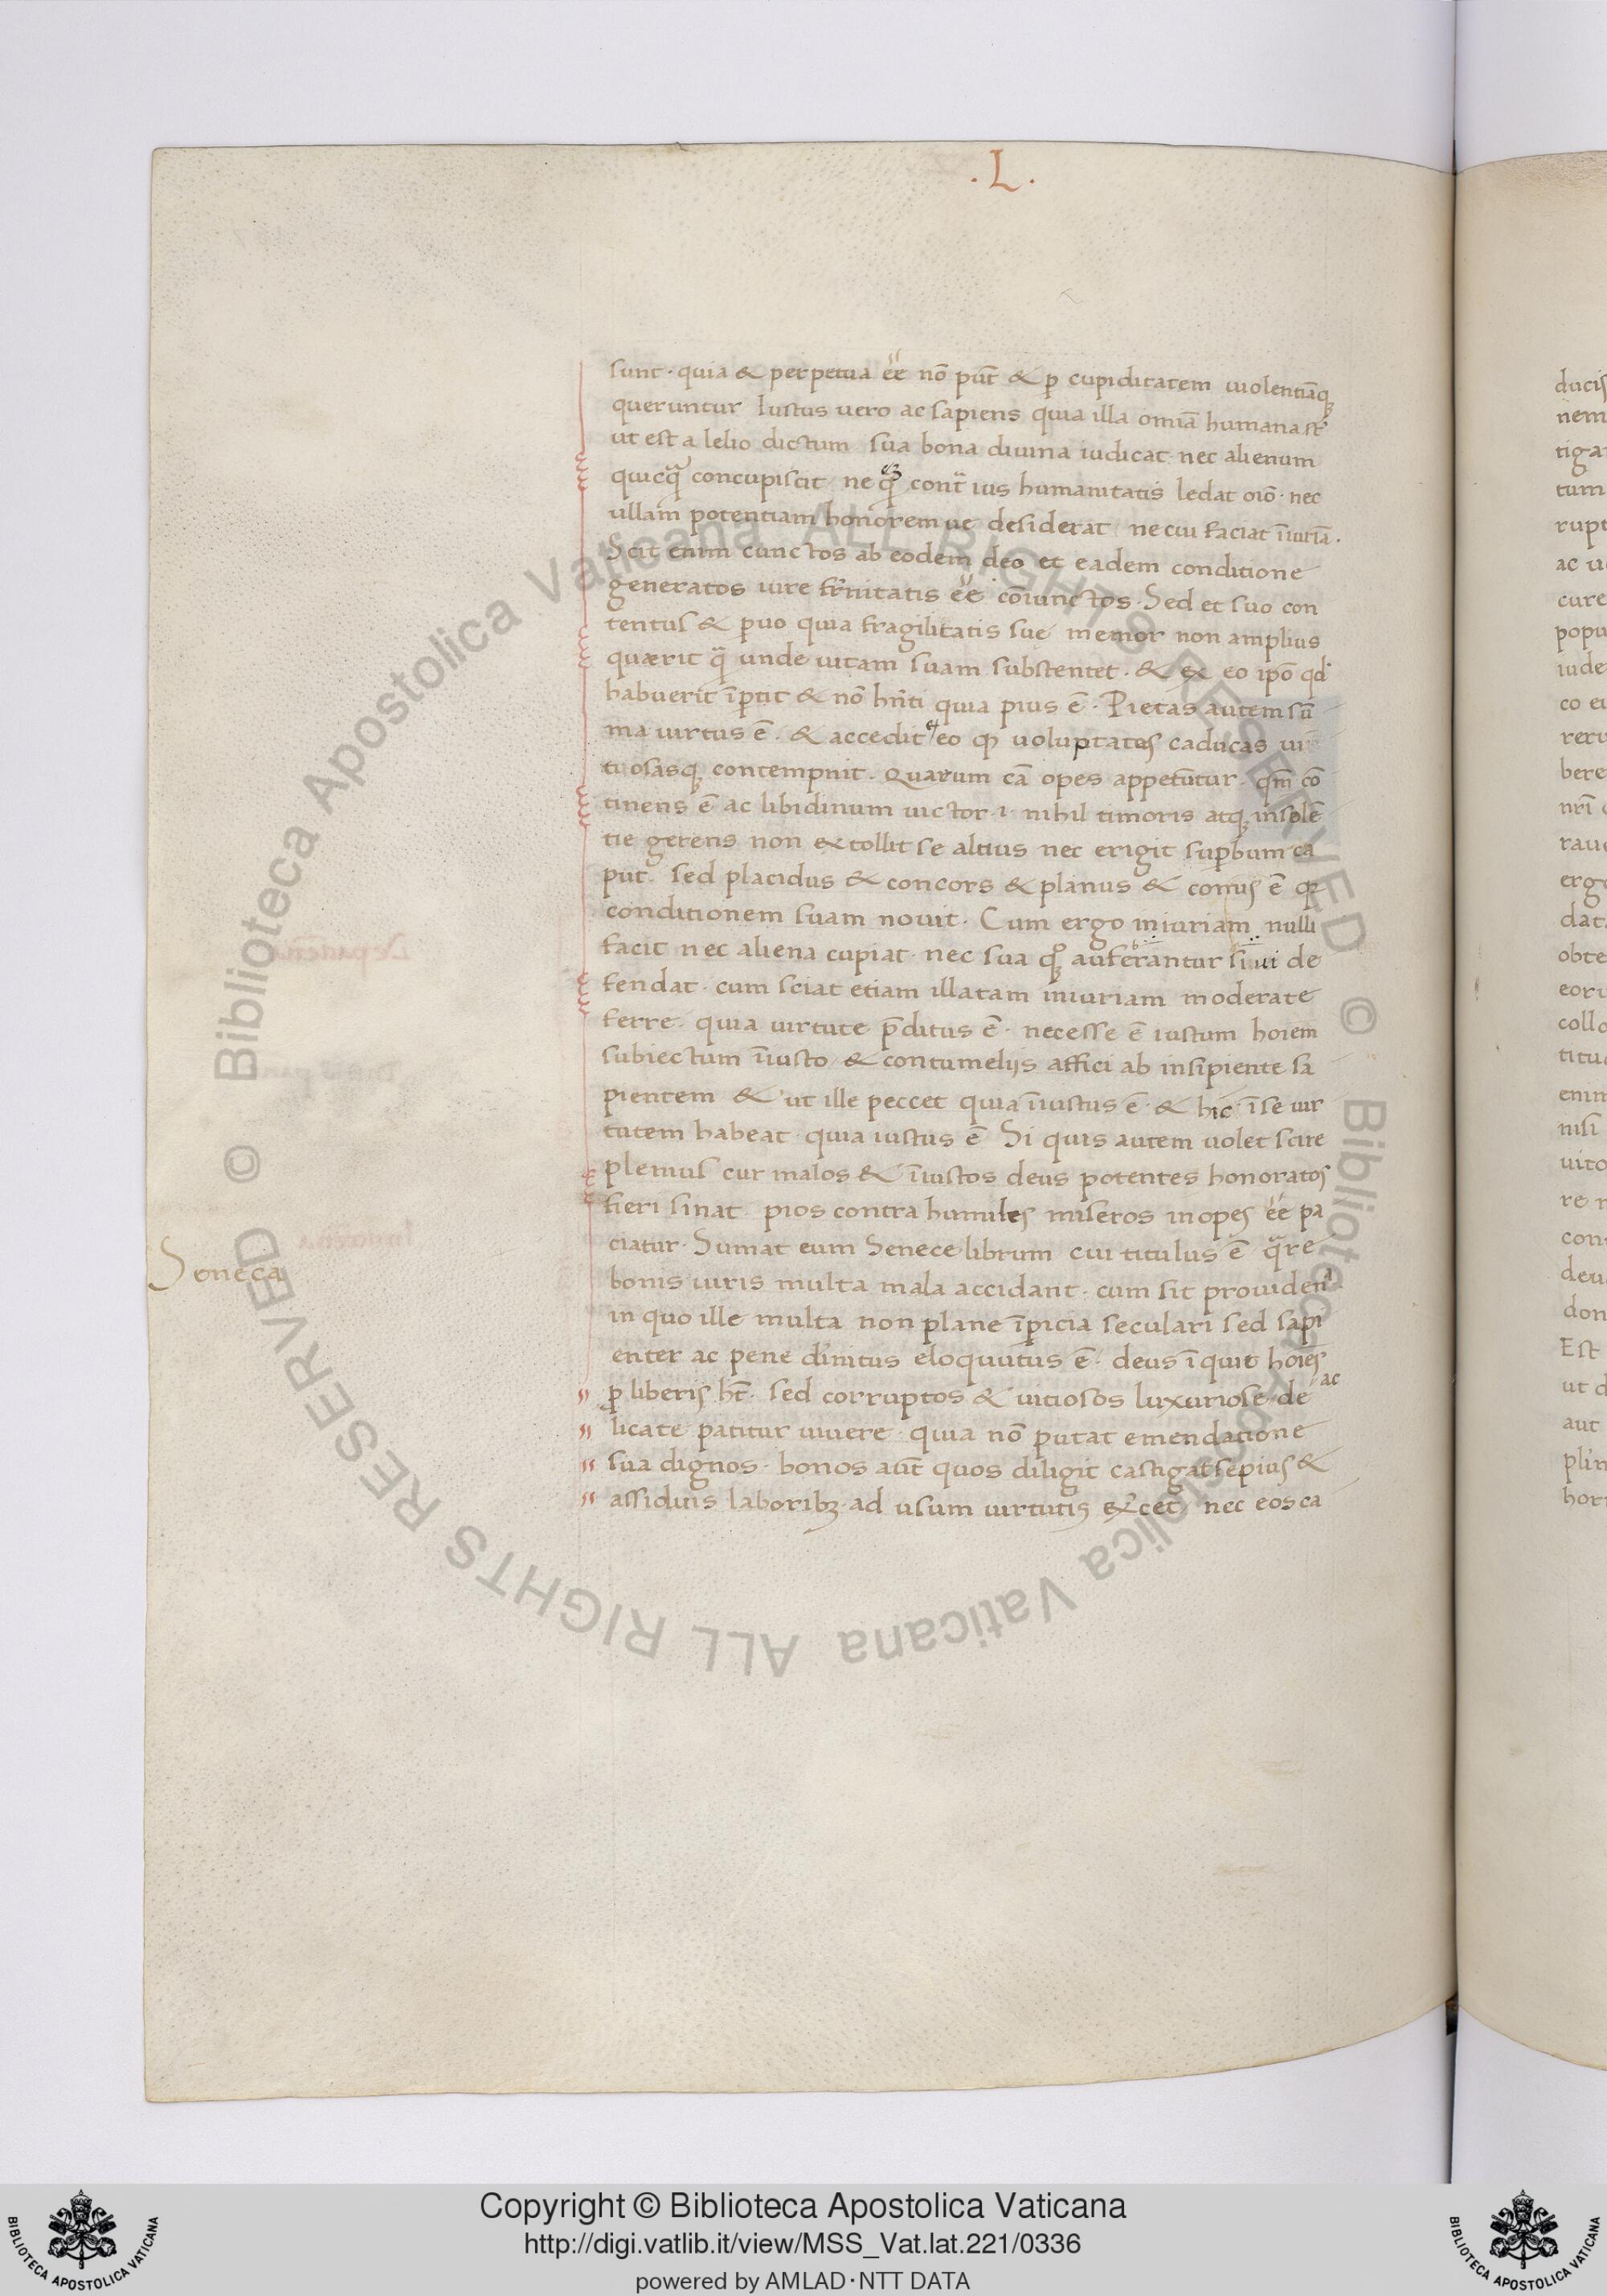 . L .
sunt · quia & perpetua eē nō pūt & ꝑ cupiditatem uiolentiāqꝫ
queruntur Iustus uero ac sapiens quia illa omīa humana st̄
ut est a lelio dictum sua bona diuina iudicat · nec alienum
quicqᷓ concupiscit ne qꝫ cont͛ ius humanitatis ledat oīo · nec
ullam potentiam honoremue desiderat ne cui faciat īiuriā .
Scit enim cunctos ab eodem deo et eadem conditione
generatos iure fr̄nitatis eē cōiunctos · Sed et suo con
tentus & ꝑuo quia fragilitatis sue memor non amplius
quærit qᷓ unde uitam suam substentet . & ex eo ipō qd
habuerit īꝑtit & nō hn̄ti quia pius ē · Pietas autem sū
ma uirtus ē . & accedit et eo ꝙ uoluptates caducas ui
tiosasqꝫ contempnit . Quarum cā opes appetūtur · qm̄ cō
tinens ē ac libidinum uictor · i · nihil timoris atqꝫ insolē
tie gerens non extollit se altius nec erigit suꝑbum ca
put sed placidus & concors & planus & comis ē qꝫ
conditionem suam nouit . Cum ergo iniuriam nulli
facit nec aliena cupiat · nec sua qͦꝫ auferantur si ui de
fendat · cum sciat etiam illatam iniuriam moderate
ferre · quia uirtute p̄ditus ē · necesse ē iustum hoiem
subiectum īiusto & contumeliis affici ab insipiente sa
pientem & ut ille peccet quia īiustus ē · & hic ī se uir
tutem habeat · quia iustus ē Si quis autem uolet scire
plemus cur malos & īiustos deus potentes honoratos
fieri sinat pios contra humiles miseros inopes eē pa
ciatur · Sumat eum Senece librum cui titulus ē qᷓre
Seneca
bonis uiris multa mala accidant · cum sit prouiden
in quo ille multa non plane īꝑicia seculari sed sapi
enter ac pene diīnitus eloquutus ē · deus īquit hoīes
ꝓ liberis ht̄ · sed corruptos & uitiosos luxuriose ac de
licate patitur uiuere · quia nō putat emendatione
sua dignos · bonos aūt quos diligit castigat sepius &
assiduis laboribꝫ · ad usum uirtutis ex͛cet nec eos ca
Copyright © Biblioteca Apostolica Vaticana
http://digi.vatlib.it/view/MSS_Vat.lat.221/0336
powered by AMLAD·NTT DATA